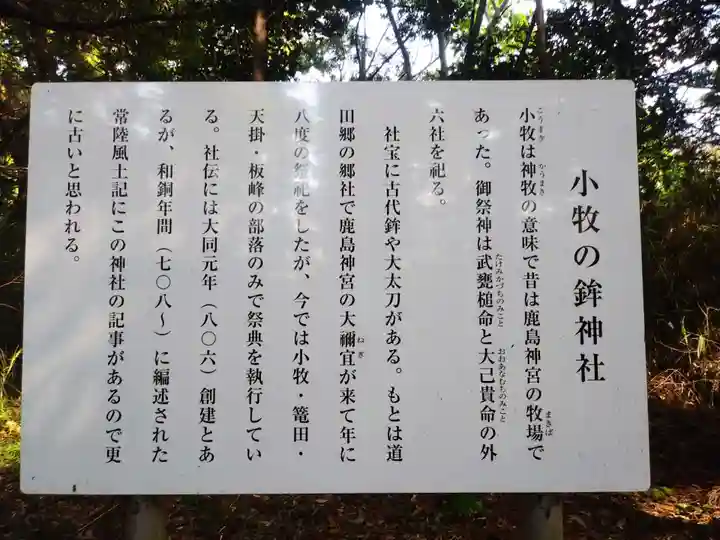 小牧の鉾神社
小牧は神牧の意味で昔は鹿島神宮の牧場で
こうまき
かうまき
まきば
あった。御祭神は武甕槌命と大己貴命の外
たけみかづちのみこと
おおあなむちのみこと
六社を祀る。
社宝に古代鉾や大太刀がある。もとは道
田郷の郷社で鹿島神宮の大禰宜が来て年に
ねぎ
八度の祭祀をしたが、今では小牧・篭田・
天掛・板峰の部落のみで祭典を執行してい
る。社伝には大同元年（八〇六）創建とあ
るが、和銅年間（七〇八〜）に編述された
常陸風土記にこの神社の記事があるので更
に古いと思われる。